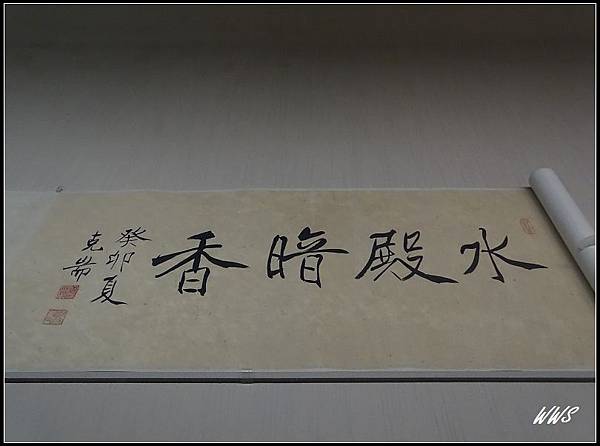 水殿暗香
癸卯夏
克耑
WWS